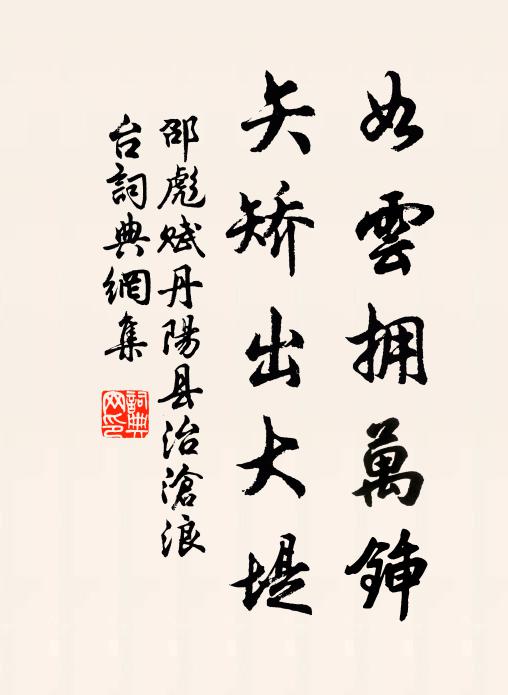 如雲拥萬鍤
夭矯出大堤
邵彪赋丹陽县治滄浪
台詞典網集
詞典
网印